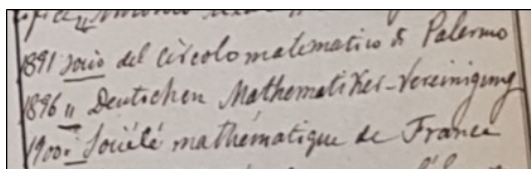 1891 socio del circolo matematico di Palermo
1896 " Deutschen Mathematiker-Vereinigung
1900 " Société mathématique de France